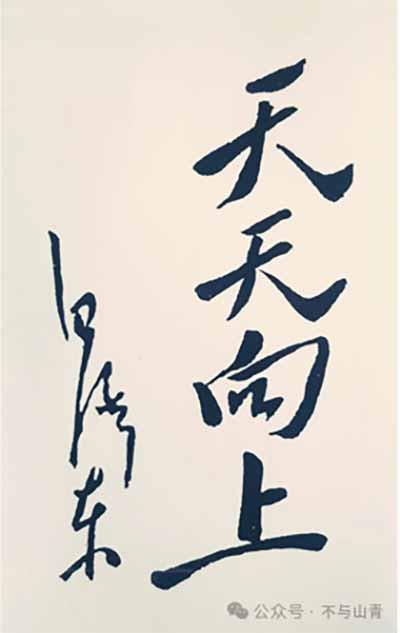 天天向上
毛泽东
公众号 · 不与山青